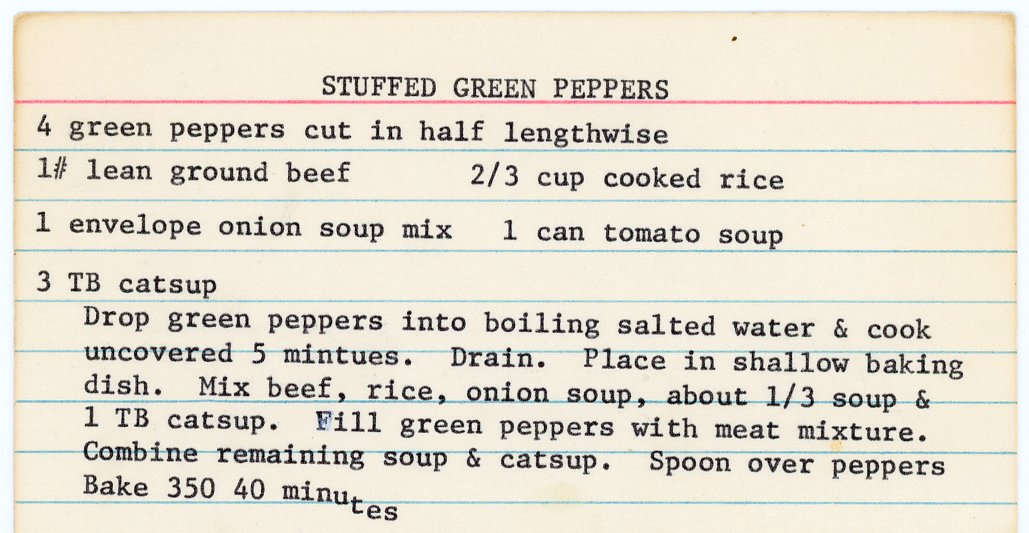 STUFFED GREEN PEPPERS
4 green peppers cut in half lengthwise
1# lean ground beef 2/3 cup cooked rice
1 envelope onion soup mix 1 can tomato soup
3 TB catsup
Drop green peppers into boiling salted water & cook
uncovered 5 mintues. Drain. Place in shallow baking
dish. Mix beef, rice, onion soup, about 1/3 soup &
1 TB catsup. Fill green peppers with meat mixture.
Combine remaining soup & catsup. Spoon over peppers
Bake 350 40 minutes